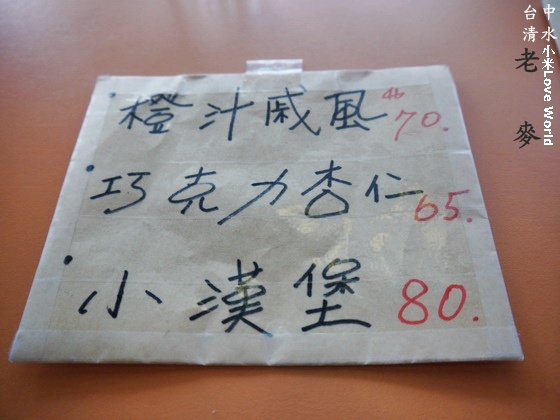 橙汁戚風 70.
巧克力杏仁 65.
小漢堡 80.
台中清水小米Love World
老麥